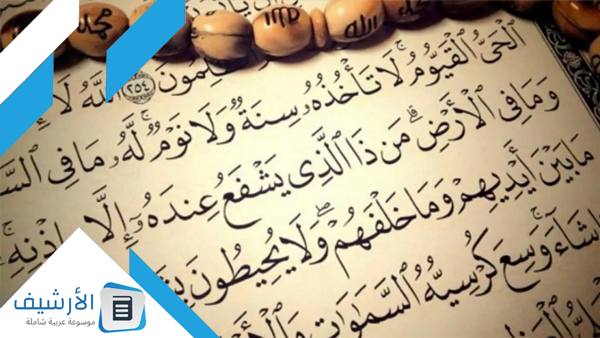 محمد
الله
لِمُونَ ٢٥٤ ٱللَّهُ لَآ
ٱلْحَىُّ ٱلْقَيُّومُ ۚ لَا تَأْخُذُهُۥ سِنَةٌ وَلَا نَوْمٌ ۚ لَّهُۥ مَا فِى ٱلسَّ
وَمَا فِى ٱلْأَرْضِ ۗ مَن ذَا ٱلَّذِى يَشْفَعُ عِندَهُۥٓ إِلَّا بِإِذْنِهِۦ ۚ
مَا بَيْنَ أَيْدِيهِمْ وَمَا خَلْفَهُمْ ۖ وَلَا يُحِيطُونَ
شَآءَ ۚ وَسِعَ كُرْسِيُّهُ ٱلسَّمَٰوَٰتِ وَٱلْأَ
الأرشيف
موسوعة عربية شاملة